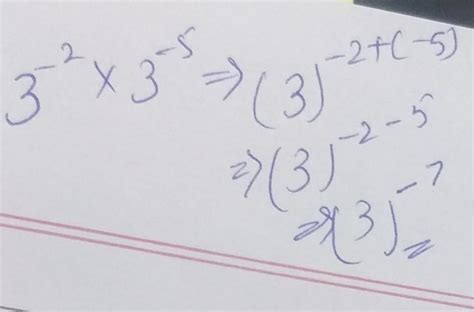 3⁻² × 3⁻⁵ ⇒ (3)⁻²⁺⁽⁻⁵⁾
⇒ (3)⁻²⁻⁵
⇒ (3)⁻⁷